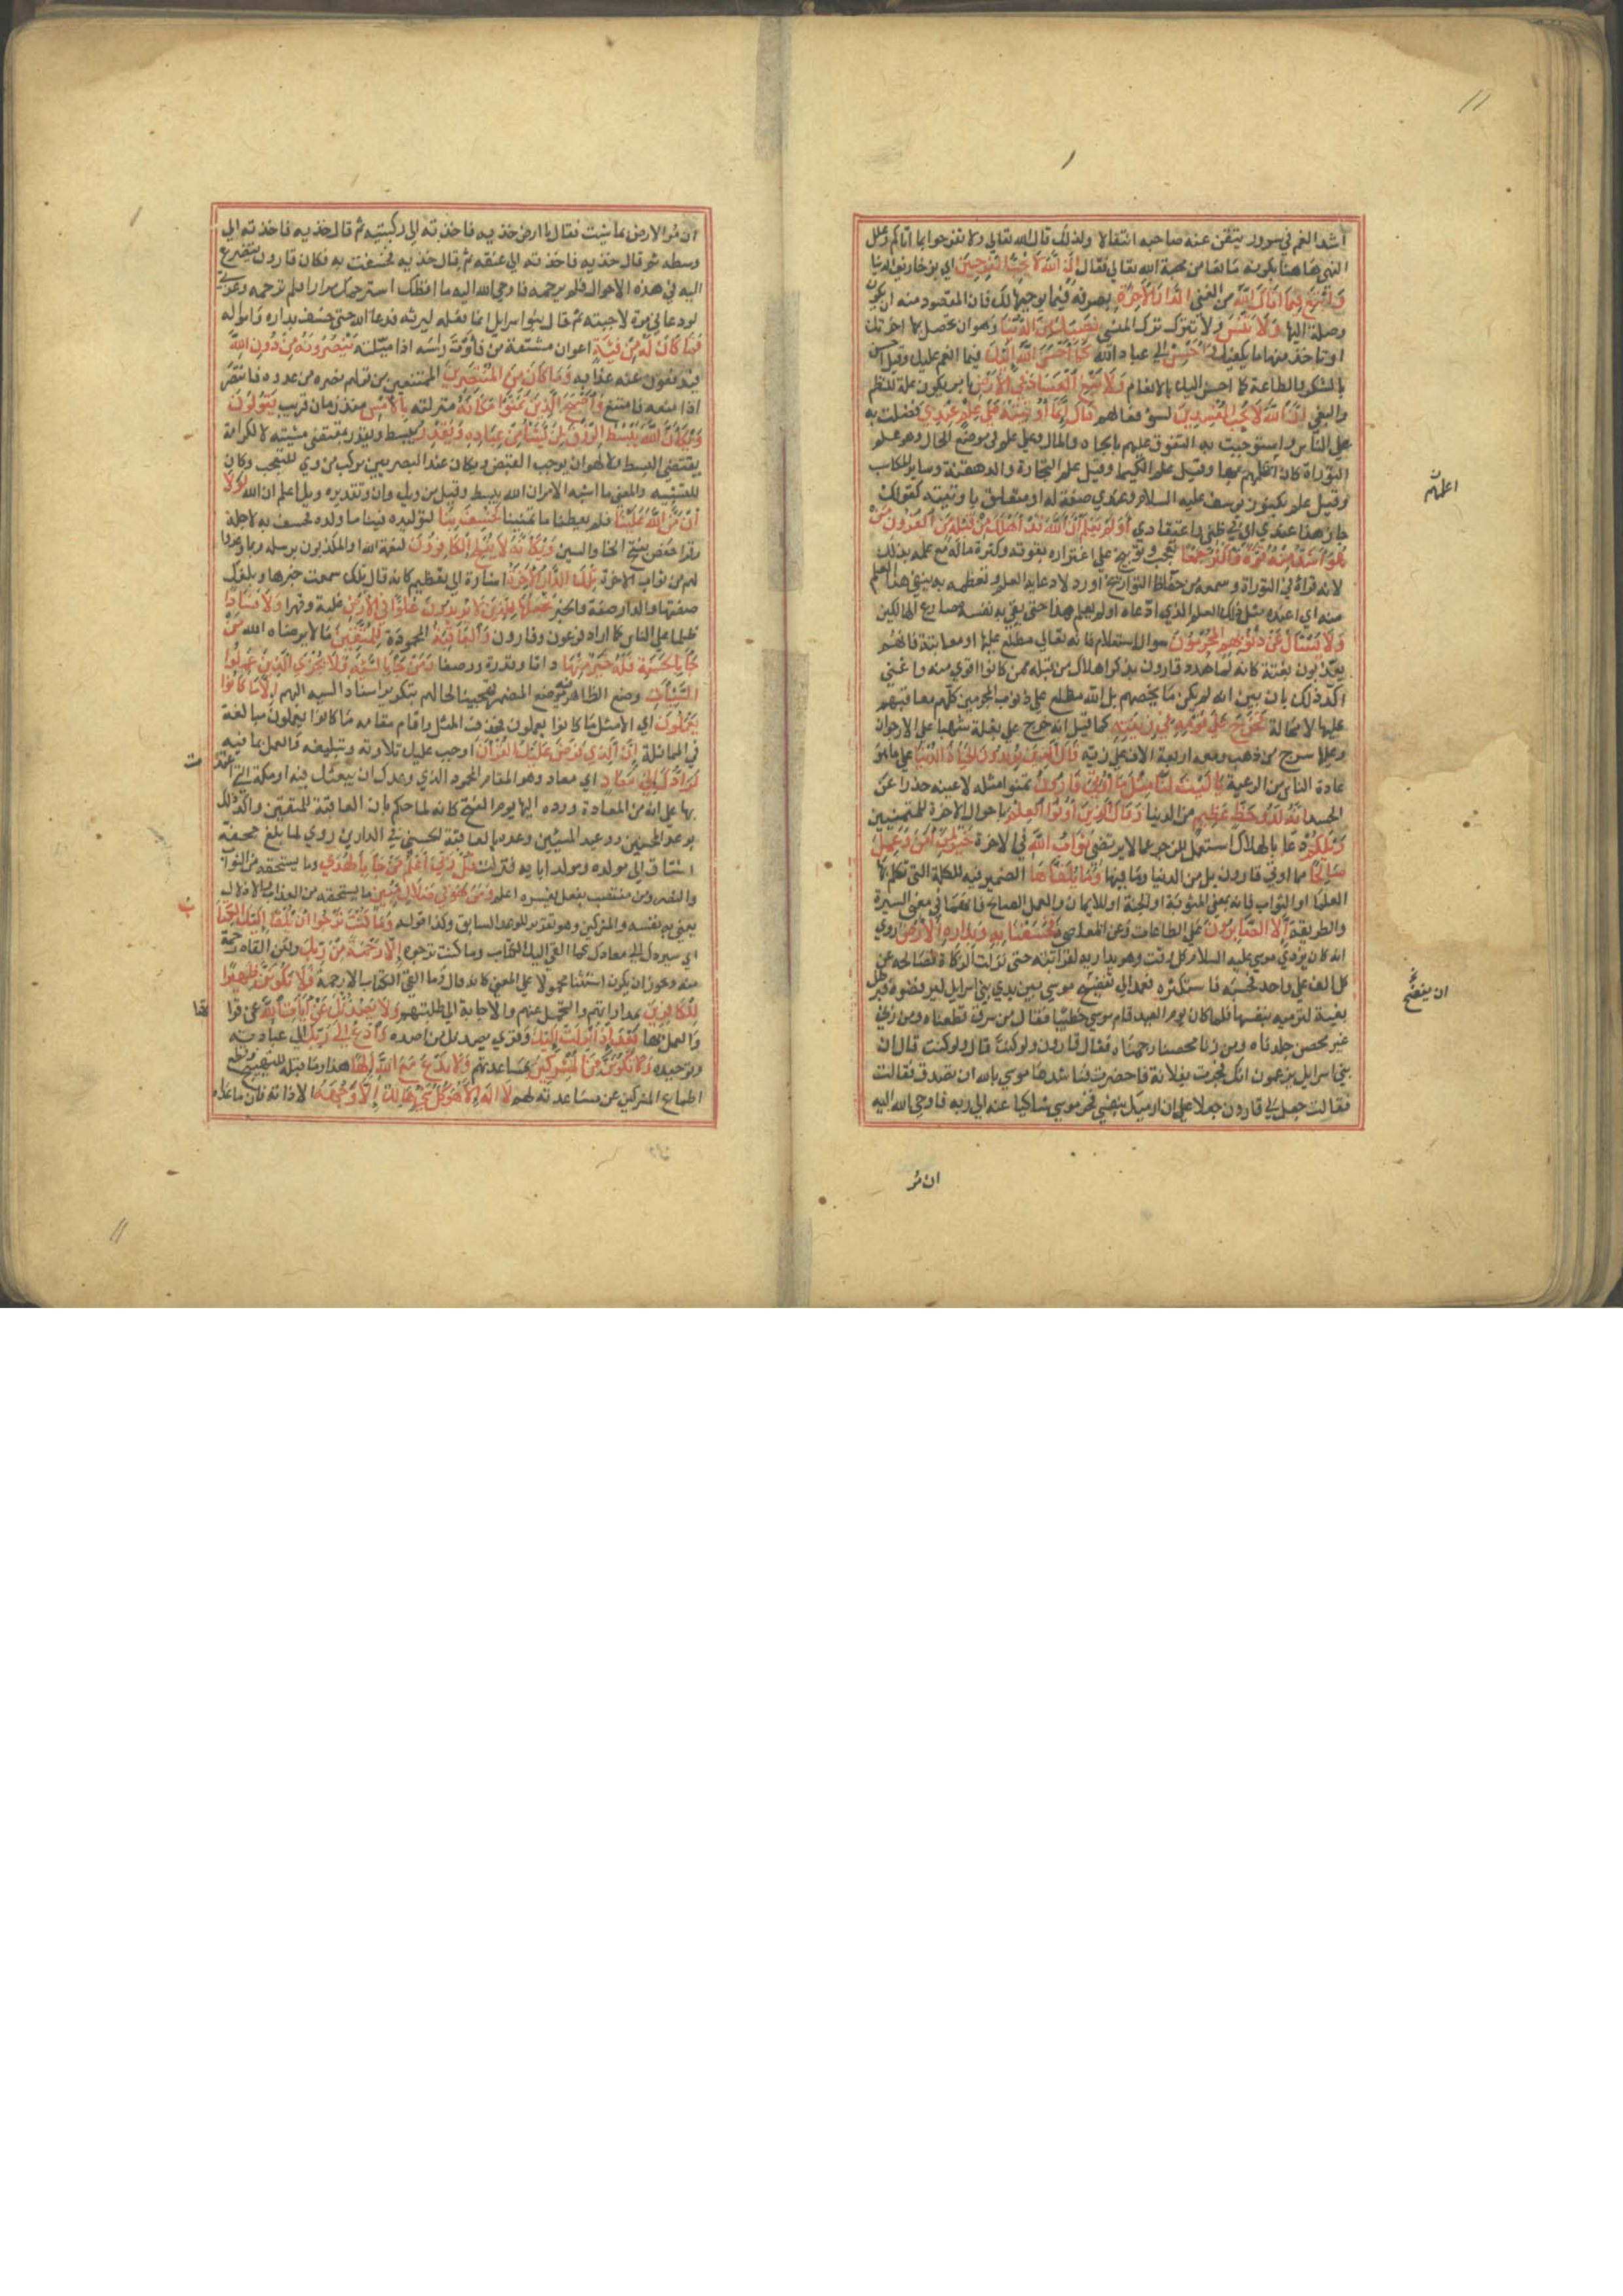 اشد الغم في سرور تيقن عنه صاحبه انتقالا ولذلك قال الله تعالى ولا تفرحوا بما اتاكم وعلل
النهي هاهنا بكونه مانعا من محبة الله تعالى فقال إن الله لا يحب الفرحين اي بزخارف الدنيا
وابتغ فيما اتاك الله من الغنى الدار الآخرة بصرفه فيما يوجبها لك فان المقصود منه ان يكون
وصلة اليها ولا تنس ولا تترك ترك المنسي نصيبك من الدنيا وهو ان تحصل بها اخرتك
او تاخذ منها ما يكفيك واحسن الى عباد الله كما أحسن الله إليك فيما انعم عليك وقيل احسن
بالشكر والطاعة كما احسن اليك بالانعام ولا تبغ الفساد في الأرض بامر يكون علة للظلم
والبغي إن الله لا يحب المفسدين لسوء فعالهم قال إنما أوتيته على علم عندي فضلت به
على الناس واستوجبت به التفوق عليهم بالجاه والمال وعلى علم في موضع الحال وهو علم
التوراة كان اعلمهم بها وقيل علم الكيميا وقيل علم التجارة والدهقنة وساير المكاسب
وقيل علم بكنوز يوسف عليه السلام وعندي صفة له او متعلق باوتيته كقولك
جاز هذا عندي اي في ظني واعتقادي أولم يعلم أن الله قد أهلك من قبله من القرون من
هو أشد منه قوة وأكثر جمعا تعجب وتوبيخ على اغتراره بقوته وكثرة ماله مع علمه بذلك
لانه قرأه في التوراة وسمعه من حفاظ التواريخ او رد لادعائه العلم وتعظمه به بنفي هذا العلم
منه اي اعنده مثل ذلك العلم الذي ادعاه ولم يعلم هذا حتى يقي به نفسه مصارع الهالكين
ولا يسأل عن ذنوبهم المجرمون سوال استعلام فانه تعالى مطلع عليها او معاتبة فانهم
يعذبون بغتة كانه لما هدد قارون بذكر اهلاك من قبله ممن كانوا اقوى منه واغنى
اكد ذلك بان بين انه لم يكن ما يخصهم بل الله مطلع على ذنوب المجرمين كلهم معاقبهم
عليها لا محالة فخرج على قومه في زينته كما قيل انه خرج على بغلة شهبا عليه الارجوان
وعليها سرج من ذهب ومعه اربعة الاف على زيه قال الذين يريدون الحياة الدنيا على ما هو
عادة الناس من الرغبة يا ليت لنا مثل ما أوتي قارون تمنوا مثله لا عينه حذرا عن
الحسد انه لذو حظ عظيم من الدنيا وقال الذين أوتوا العلم باحوال الاخرة للمتمنين
ويلكم دعا بالهلاك استعمل للزجر عما لا يرتضى ثواب الله في الاخرة خير لمن آمن وعمل
صالحا مما اوتي قارون بل من الدنيا وما فيها ولا يلقاها الضمير فيه للكلمة التي تكلم بها
العلما او للثواب فانه بمعنى المثوبة او الجنة او للايمان والعمل الصالح فانهما في معنى السيرة
والطريقة إلا الصابرون على الطاعات وعن المعاصي فخسفنا به وبداره الأرض روي
انه كان يؤذي موسى عليه السلام كل وقت وهو يداريه لقرابته حتى نزلت الزكاة فصالحه عن
كل الف على واحد فحسبه فاستكثره فعمد الى ان يفضح موسى بين بني اسرايل ليرفضوه فبرطل
بغية لترميه بنفسها فلما كان يوم العيد قام موسى خطيبا فقال من سرق قطعناه ومن زنى
غير محصن جلدناه ومن زنا محصنا رجمناه فقال قارون ولو كنت قال ولو كنت قال ان
بني اسرايل يزعمون انك فجرت بفلانة فاحضرت فناشدها موسى بالله ان تصدق فقالت
فقالت جعل لي قارون جعلا على ان ارميك بنفسي فخر موسى شاكيا عنه الى ربه فاوحى الله اليه
اعلمهم
ان يفضح
ان مر
11
ان مر الارض بما شيت فقال يا ارض خذيه فاخذته الى ركبتيه ثم قال خذيه فاخذته الى
وسطه ثم قال خذيه فاخذته الى عنقه ثم قال خذيه فخسفت به فكان قارون يتضرع
اليه في هذه الاحوال فلم يرحمه فاوحى الله اليه ما افظك استرحمك مرارا فلم ترحمه وعزتي
لو دعاني مرة لاجبته ثم قال بنوا سرايل انما فعله ليرثه فدعا الله حتى خسف بداره وامواله
فما كان له من فئة اعوان مشتقة من فأوت راسه اذا ميلته ينصرونه من دون الله
فيدفعون عنه عذابه وما كان من المنتصرين الممتنعين من قولهم نصره من عدوه فانتصر
اذا منعه فامتنع وأصبح الذين تمنوا مكانه منزلته بالأمس منذ زمان قريب يقولون
ويكأن الله يبسط الرزق لمن يشاء من عباده ويقدر يبسط ويقدر بمقتضى مشيته لا لكرامة
يقتضي البسط ولا لهوان يوجب القبض ويكان عند البصريين مركب من وي للتعجب وكان
للتشبيه والمعنى ما اشبه الامر ان الله يبسط وقيل من ويك وان وتقديره ويك اعلم ان الله لولا
أن من الله علينا فلم يعطنا ما تمنينا لخسف بنا لتوليده فينا ما ولده فيه فخسف به لاجله
وقرا حفص بفتح الخا والسين ويكأنه لا يفلح الكافرون لنعمة الله او المكذبون برسله وبما وعدوا
لهم من ثواب الاخرة تلك الدار الآخرة اشارة الى تعظيم كانه قال تلك سمعت خبرها وبلغك
صفتها والدار صفة والخبر نجعلها للذين لا يريدون علوا في الأرض غلبة وقهرا ولا فسادا
ظلما على الناس كما اراد فرعون وقارون والعاقبة المحمودة للمتقين ما لا يرضاه الله من
جاء بالحسنة فله خير منها ذاتا وقدرة ووصفا ومن جاء بالسيئة فلا يجزى الذين عملوا
السيئات وضع الظاهر فيه موضع المضمر تهجينا لحالهم بتكرير اسناد السيه اليهم إلا ما كانوا
يعملون اي الا مثل ما كانوا يعملون فحذف المثل واقام مقامه ما كانوا يعملون مبالغة
في المماثلة إن الذي فرض عليك القرآن اوجب عليك تلاوته وتبليغه والعمل بما فيه
لرادك إلى معاد اي معاد وهو المقام المحمود الذي وعدك ان يبعثك فيه او مكة التي
بها على انه من العادة رده اليها يوم الفتح كانه لما حكم بان العاقبة للمتقين واكد ذلك
بوعد المحسنين ووعيد المسيئين وعده بالعاقبة الحسنى في الدارين روي لما بلغ جحفة
اشتاق الى مولده ومولد ابايه فنزلت قل ربي أعلم من جاء بالهدى وما يستحقه من الثواب
والنصر ومن منتصب بفعل يفسره اعلم ومن هو في ضلال مبين وما يستحقه من العذاب والاذلال
يعني به نفسه والمشركين وهو تقرير للوعد السابق وكذا قوله وما كنت ترجوا أن يلقى إليك الكتاب
اي سيردك الى معادك كما القي اليك الكتاب وما كنت ترجوه إلا رحمة من ربك ولكن القاه رحمة
منه ويجوز ان يكون استثنا محمولا على المعنى كانه قال وما القي الكتاب الا رحمة فلا تكونن ظهيرا
للكافرين بمداراتهم والتحمل عنهم والاجابة الى طلبتهم ولا يصدنك عن آيات الله عن قرا
والعمل بها بعد إذ أنزلت إليك وقري يصدنك من اصده وادع إلى ربك الى عبادته
وتوحيده ولا تكونن من المشركين بمساعدتهم ولا تدع مع الله إلها هذا وما قبله للتهييج وقطع
اطماع المشركين عن مساعدته لهم لا اله إلا هو كل شيء هالك إلا وجهه الا ذاته فان ما عداه
11